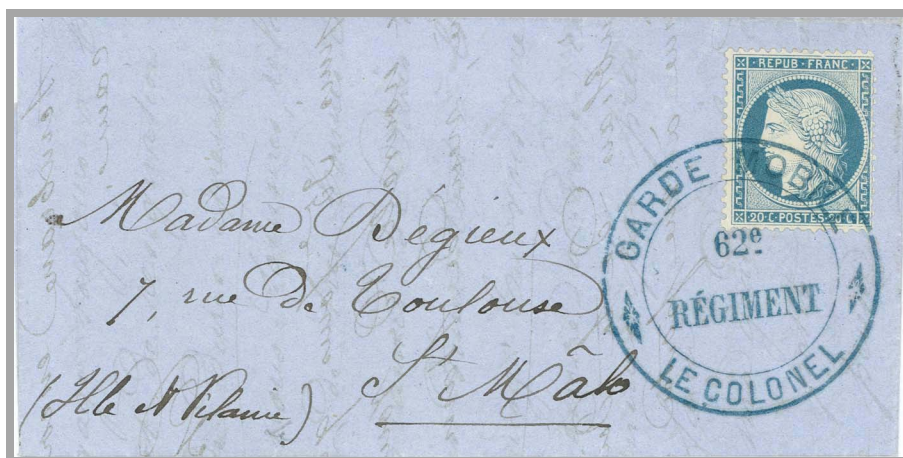 REPUB·FRANC·
20·C·POSTES·20·C
GARDE MOBILE
62e
RÉGIMENT
LE COLONEL
Madame Dégieux
7, rue De Toulouse
St Mâlo
(Ille et Vilaine)